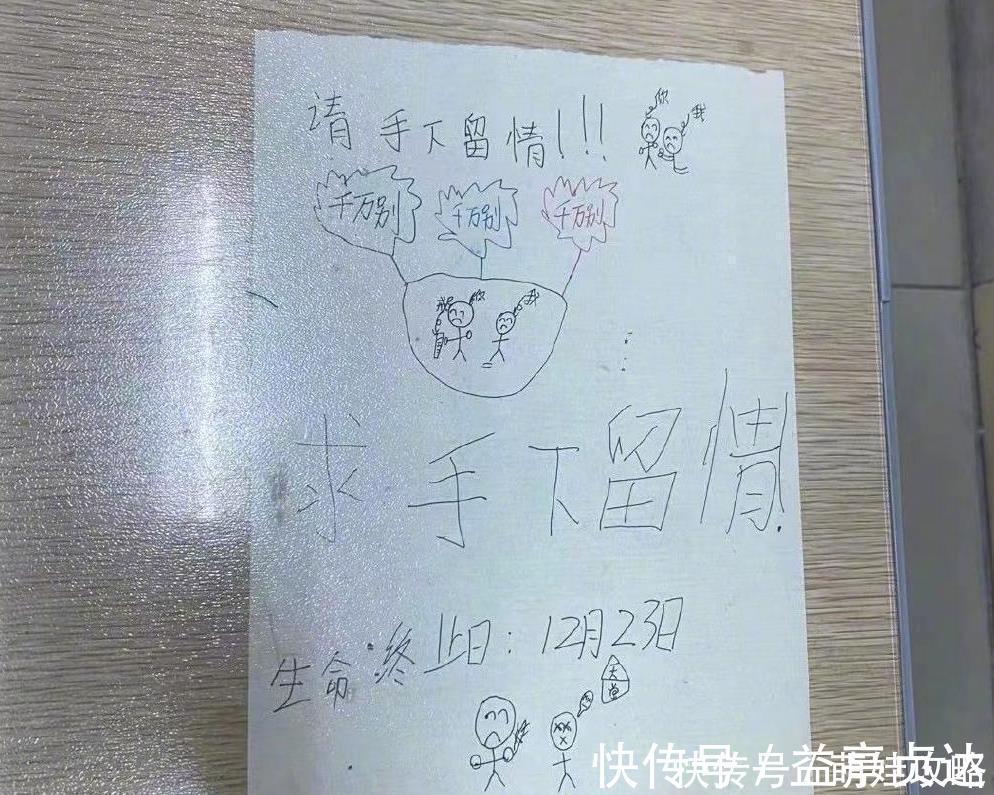 请手下留情!!!
你
我
千万别 千万别 千万别
你 我
求手下留情!
生命终止日：12月23日
天堂